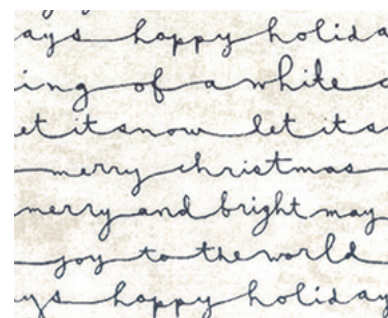 ays happy holida
ing of a white
et it snow let it s
merry christmas
merry and bright may
joy to the world
ys happy holiday